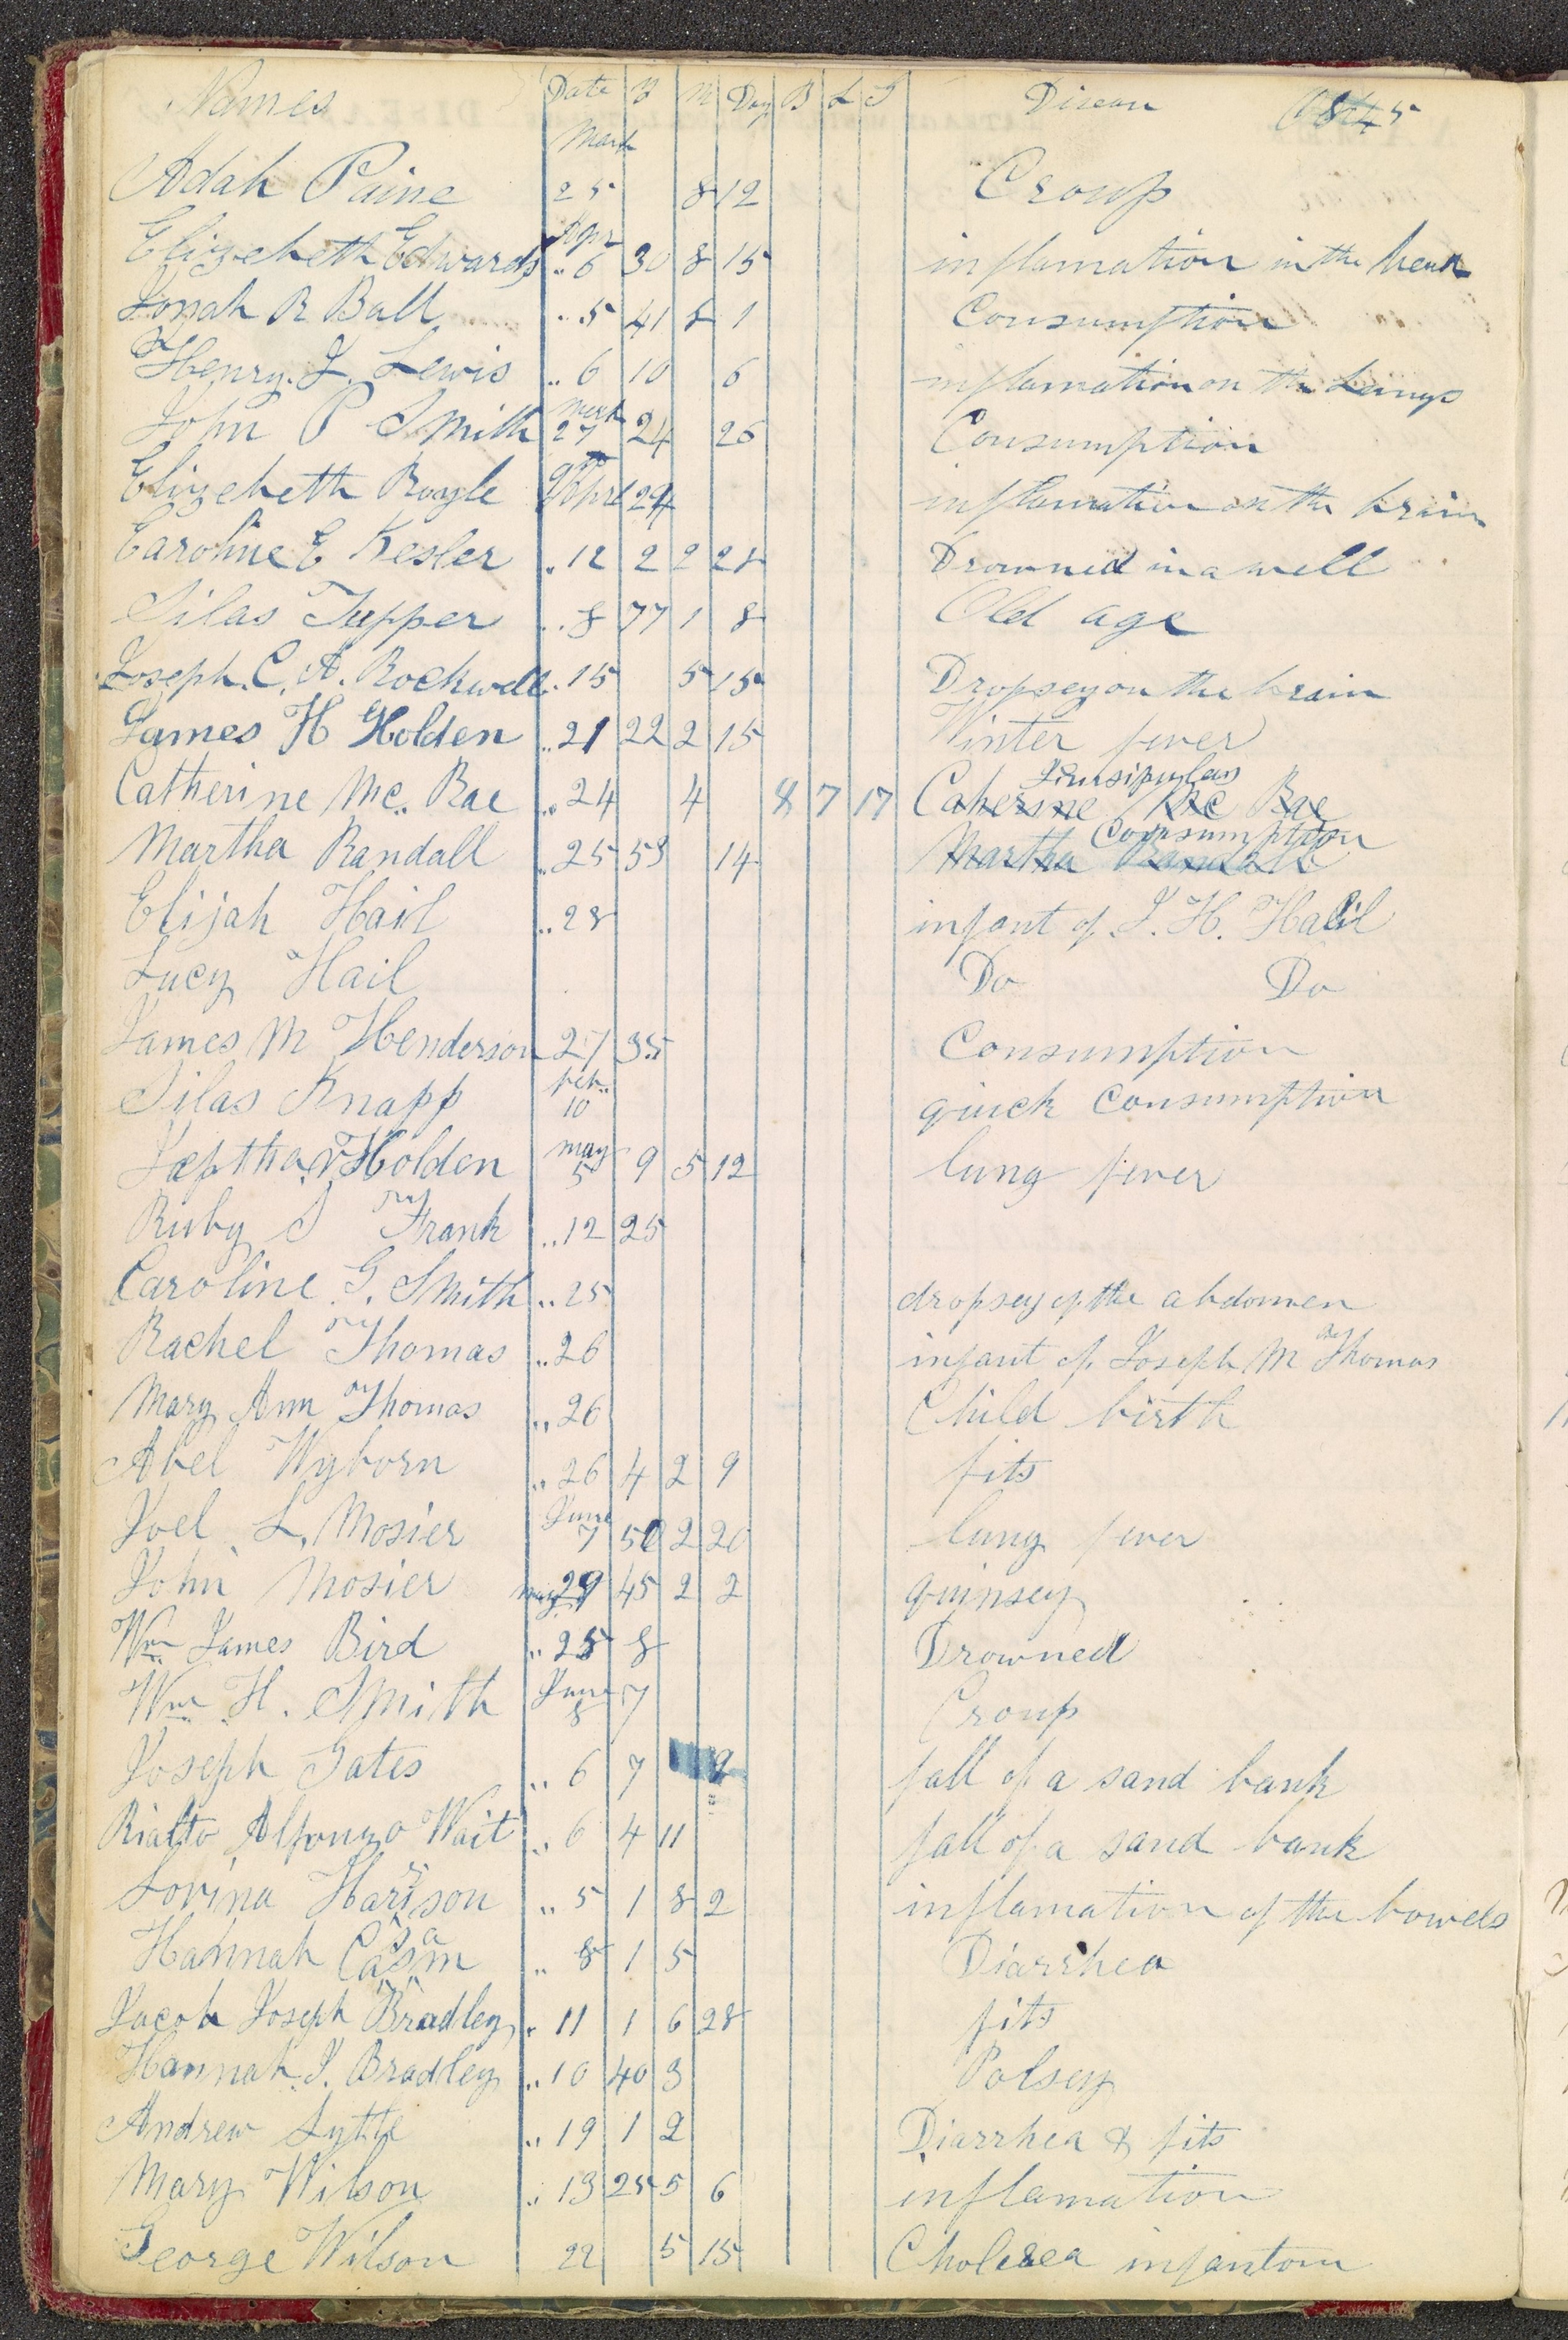 Names Date Y M Day B L S Disease 1845
March
Adah Paine 25 8 12 Croup
Apr
Elizebeth Edwards " 6 30 8 15 inflamation in the head
Jonah R Ball " 5 41 8 1 Consumption
Henry. J. Lewis " 6 10 6 inflamation on the Lungs
March
John P Smith 27 24 26 Consumption
Elizebeth Boyle Aprl 24 inflamation on the brain
Caroline E Kesler " 12 2 2 28 Drowned in a well
Silas Tupper " 8 77 1 8 Old age
Joseph. C. A. Rockwell " 15 5 15 Dropsey on the brain
James H Holden " 21 22 2 15 Winter fever
Eursipulas
Catherine Mc. Rae " 24 4 8 7 17 Caherine Mc Rae
Consumption
Martha Randall " 25 53 14 Martha Randall
Elijah Hail " 28 infant of J. H. Hail
Lucy Hail Do Do
James M Henderson 27 35 Consumption
Feb.
Silas Knapp 10 quick Consumption
may
Jeptha V Holden 5 9 5 12 lung fever
Ruby S Frank " 12 25
Caroline G. Smith " 25 dropsey of the abdomen
Rachel Thomas " 26 infant of Joseph M Thomas
Mary Ann Thomas " 26 Child birth
Abel Wyborn " 26 4 2 9 fits
June
Joel L. Mosier 7 50 2 20 lung fever
John Mosier may 29 45 2 2 quinsey
Wm James Bird " 25 8 Drowned
Wm H. Smith June 8 7 Croup
Joseph Gates " 6 7 2 fall of a sand bank
Rialto Alfonzo Wait " 6 4 11 fall of a sand bank
Lovina Harrison " 5 1 8 2 inflamation of the bowels
Hannah " 8 1 5 Diarrhea
Jacob Joseph Bradley " 11 1 6 28 fits
Hannah J. Bradley " 10 40 3 Polsey
Andrew Lytle " 19 1 2 Diarrhea & fits
Mary Wilson " 13 25 5 6 inflamation
George Wilson 22 5 15 Cholera infantom